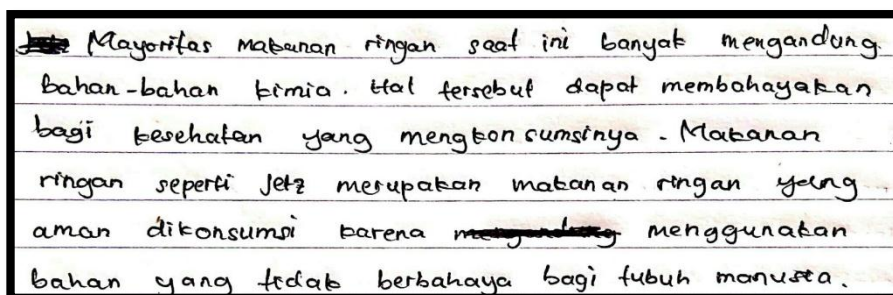 Mayoritas makanan ringan saat ini banyak mengandung
bahan-bahan kimia. Hal tersebut dapat membahayakan
bagi kesehatan yang mengkonsumsinya. Makanan
ringan seperti Jetz merupakan makanan ringan yang
aman dikonsumsi karena menggunakan
bahan yang tidak berbahaya bagi tubuh manusia.